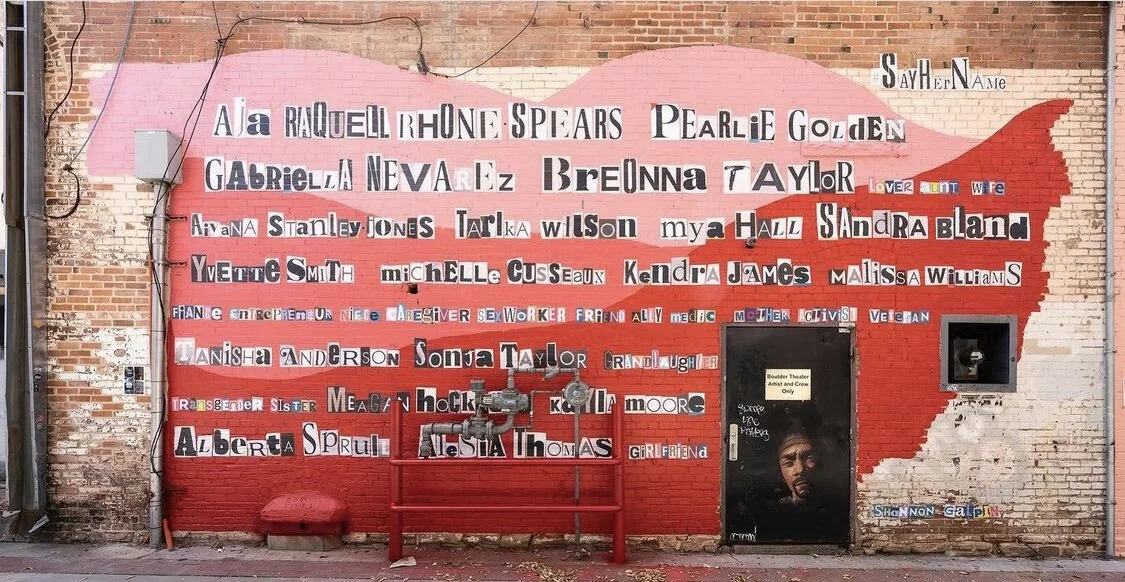 #SayHerName
Aja RAQUELL RHONE-SPEARS PEarLiE GoLdEN
GAbRiELLA NEVAREz BrEOnna TAYLoR LOVER AUNT WIFE
AiyaNA StanLey-JONES TarIka wilson mya HALL SANdRA BLand
YvETTE SmiTH micHELLe CUSSEAUX KENdRA JAMES mALISSA WiLLIAMS
FIANCE ENTREPRENEUR NIECE CAREGIVER SEXWORKER FRIEND ALLY MEDIC MOTHER ACTIVIST VETERAN
TANisHa ANDERSON Sonja TayLOR GRANDDAUGHTER
TRANSGENDER SISTER MEAGAN HOCK KayLA mOORE
ALBERTA SPRUILL ALeSIA THOMAS GIRLFRIEND
Boulder Theater
Artist and Crew
Only
SHANNON GALPIN